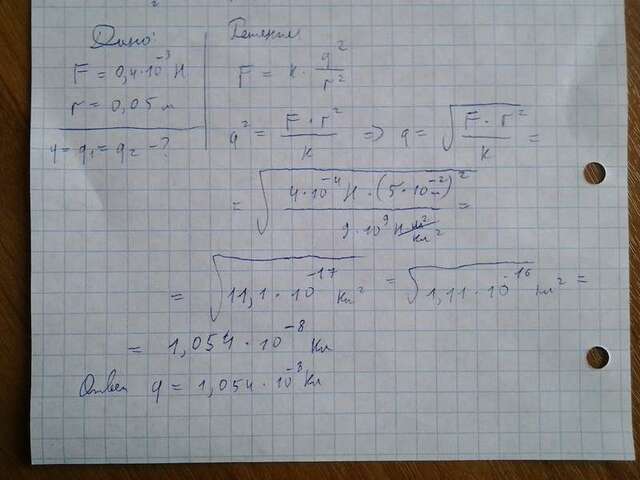 Дано:
F = 0,4·10⁻³ Н
r = 0,05 м
q = q₁ = q₂ - ?
Решение
F = k · q²/r²
q² = F·r²/k => q = √(F·r²/k) =
= √(4·10⁻⁴ Н · (5·10⁻²)²/9·10⁹ Н м²/Кл²) =
= √(11,1·10⁻¹⁷ Кл²) = √(1,11·10⁻¹⁶ Кл²) =
= 1,054·10⁻⁸ Кл
Ответ q = 1,054·10⁻³ Кл